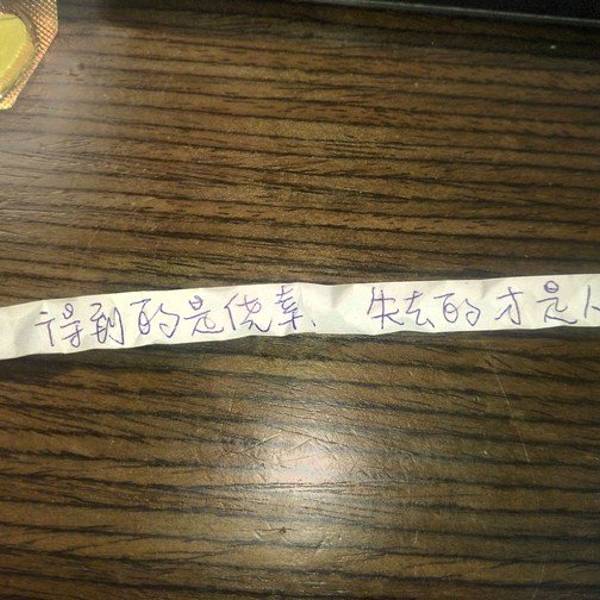 得到的是侥幸、 失去的才是